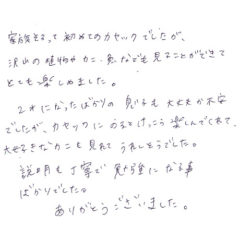 家族そろって初めてのカヤックでしたが、
沢山の植物やカニ、魚なども見ることができて
とても楽しめました。
2才になったばかりの息子も大丈夫か不安
でしたが、カヤックにのるとけっこう楽しんでくれて、
大好きなカニも見れてうれしそうでした。
説明も丁寧で勉強になる事
ばかりでした。
ありがとうございました。